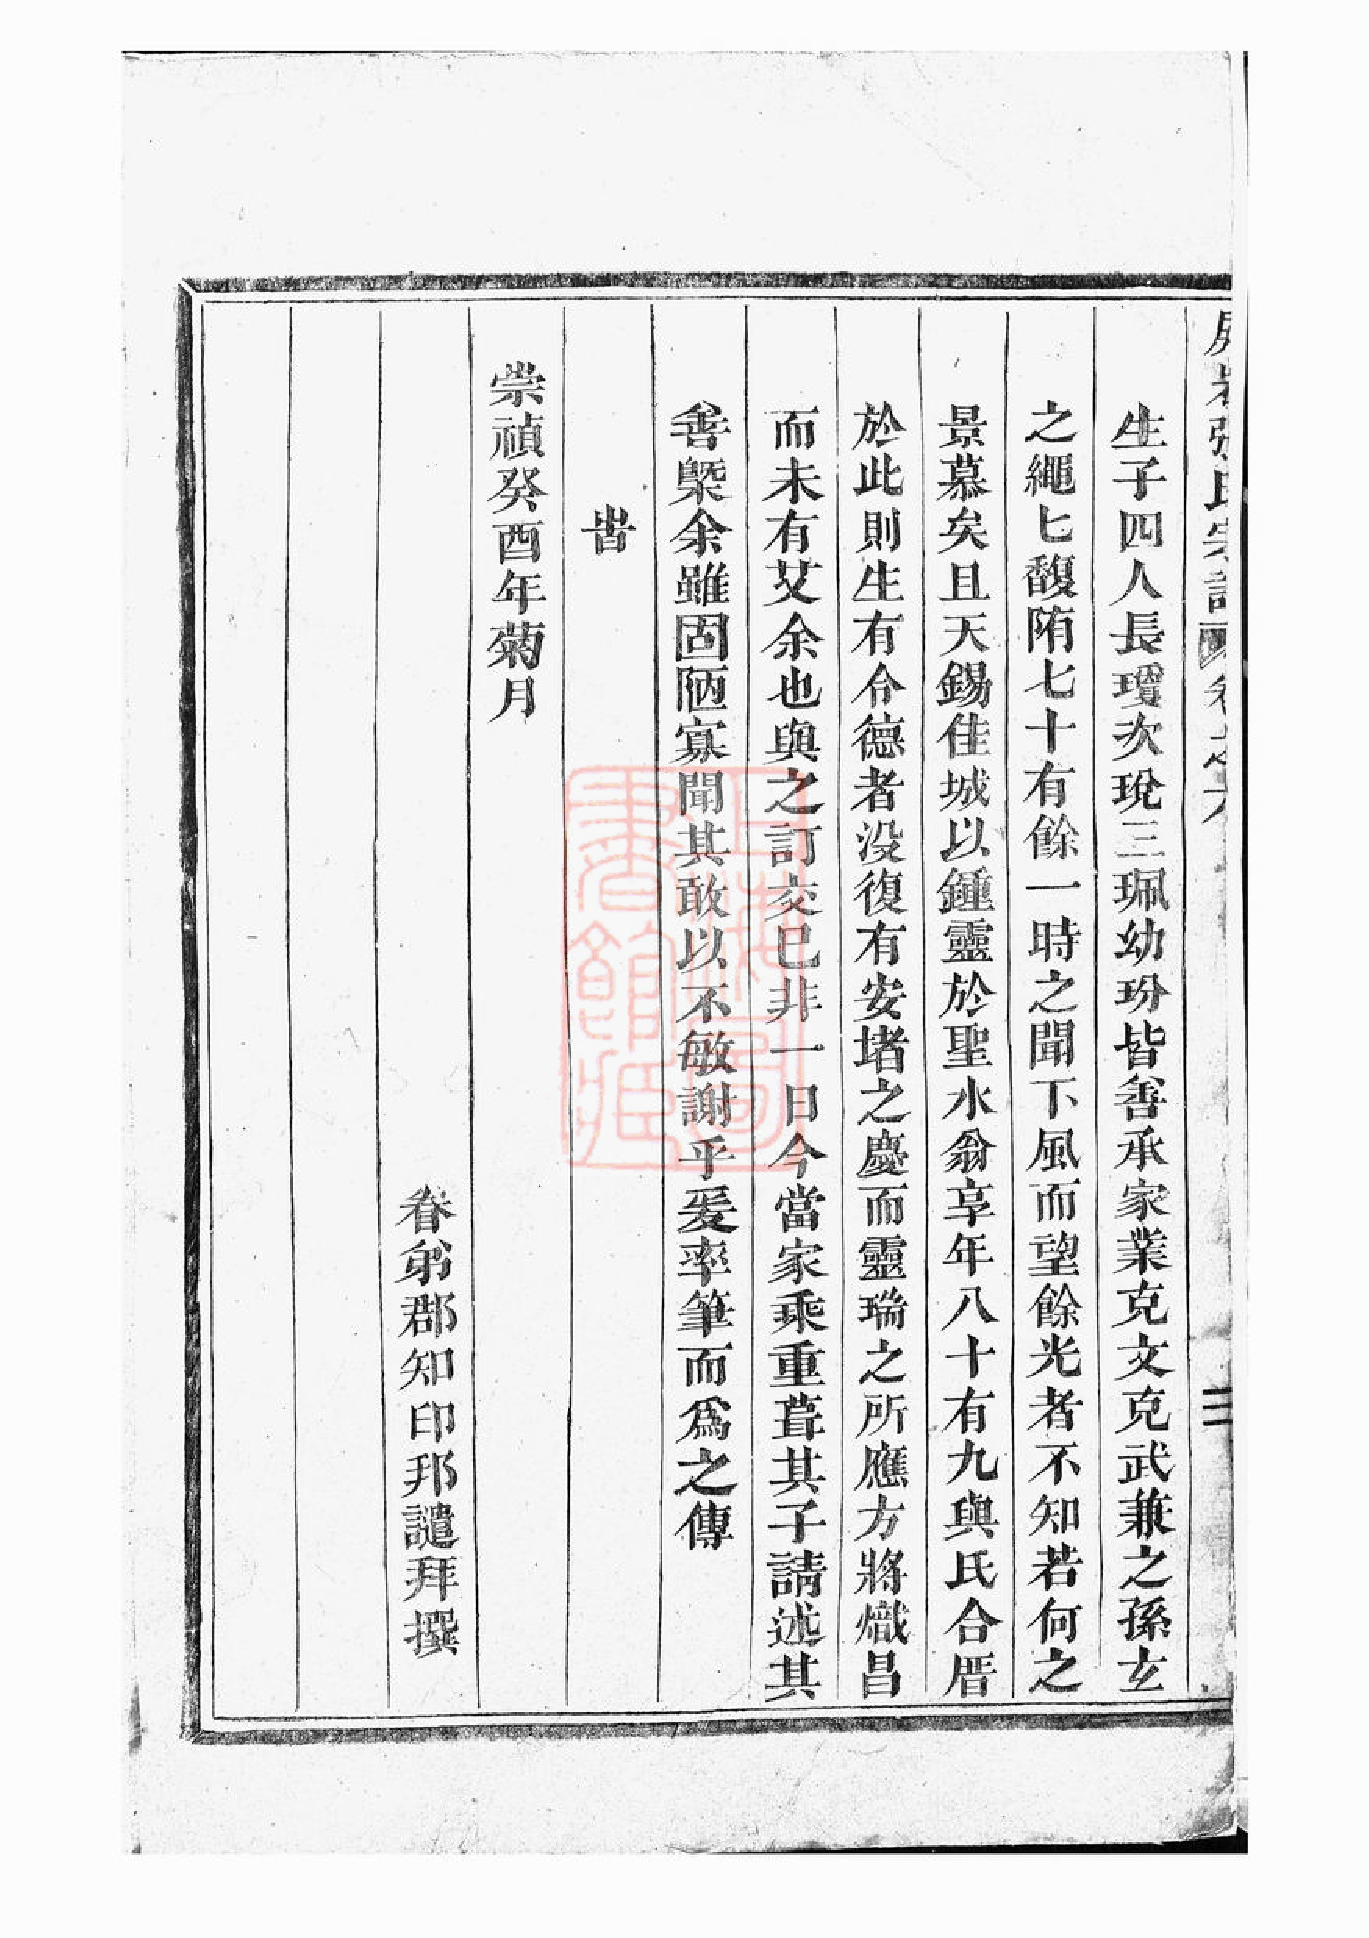 張氏宗譜 卷之六
生子四人長瓊次玧三珮幼玢皆善承家業克文克武兼之孫玄
之繩匕馥陏七十有餘一時之聞下風而望餘光者不知若何之
景慕矣且天錫佳城以鍾靈於聖水翁享年八十有九與氏合厝
於此則生有令德者没復有安堵之慶而靈瑞之所應方將熾昌
而未有艾余也與之訂交已非一日今當家乘重葺其子請述其
善槩余雖固陋寡聞其敢以不敏謝乎爰率筆而爲之傳
旹
崇禎癸酉年菊月
眷弟郡知印邦譴拜撰
上海圖書館藏